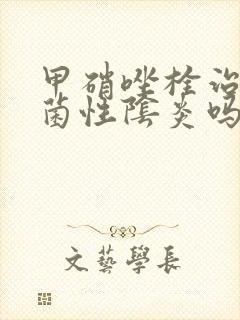 甲硝唑栓治
菌性阴炎吗
文藝學長